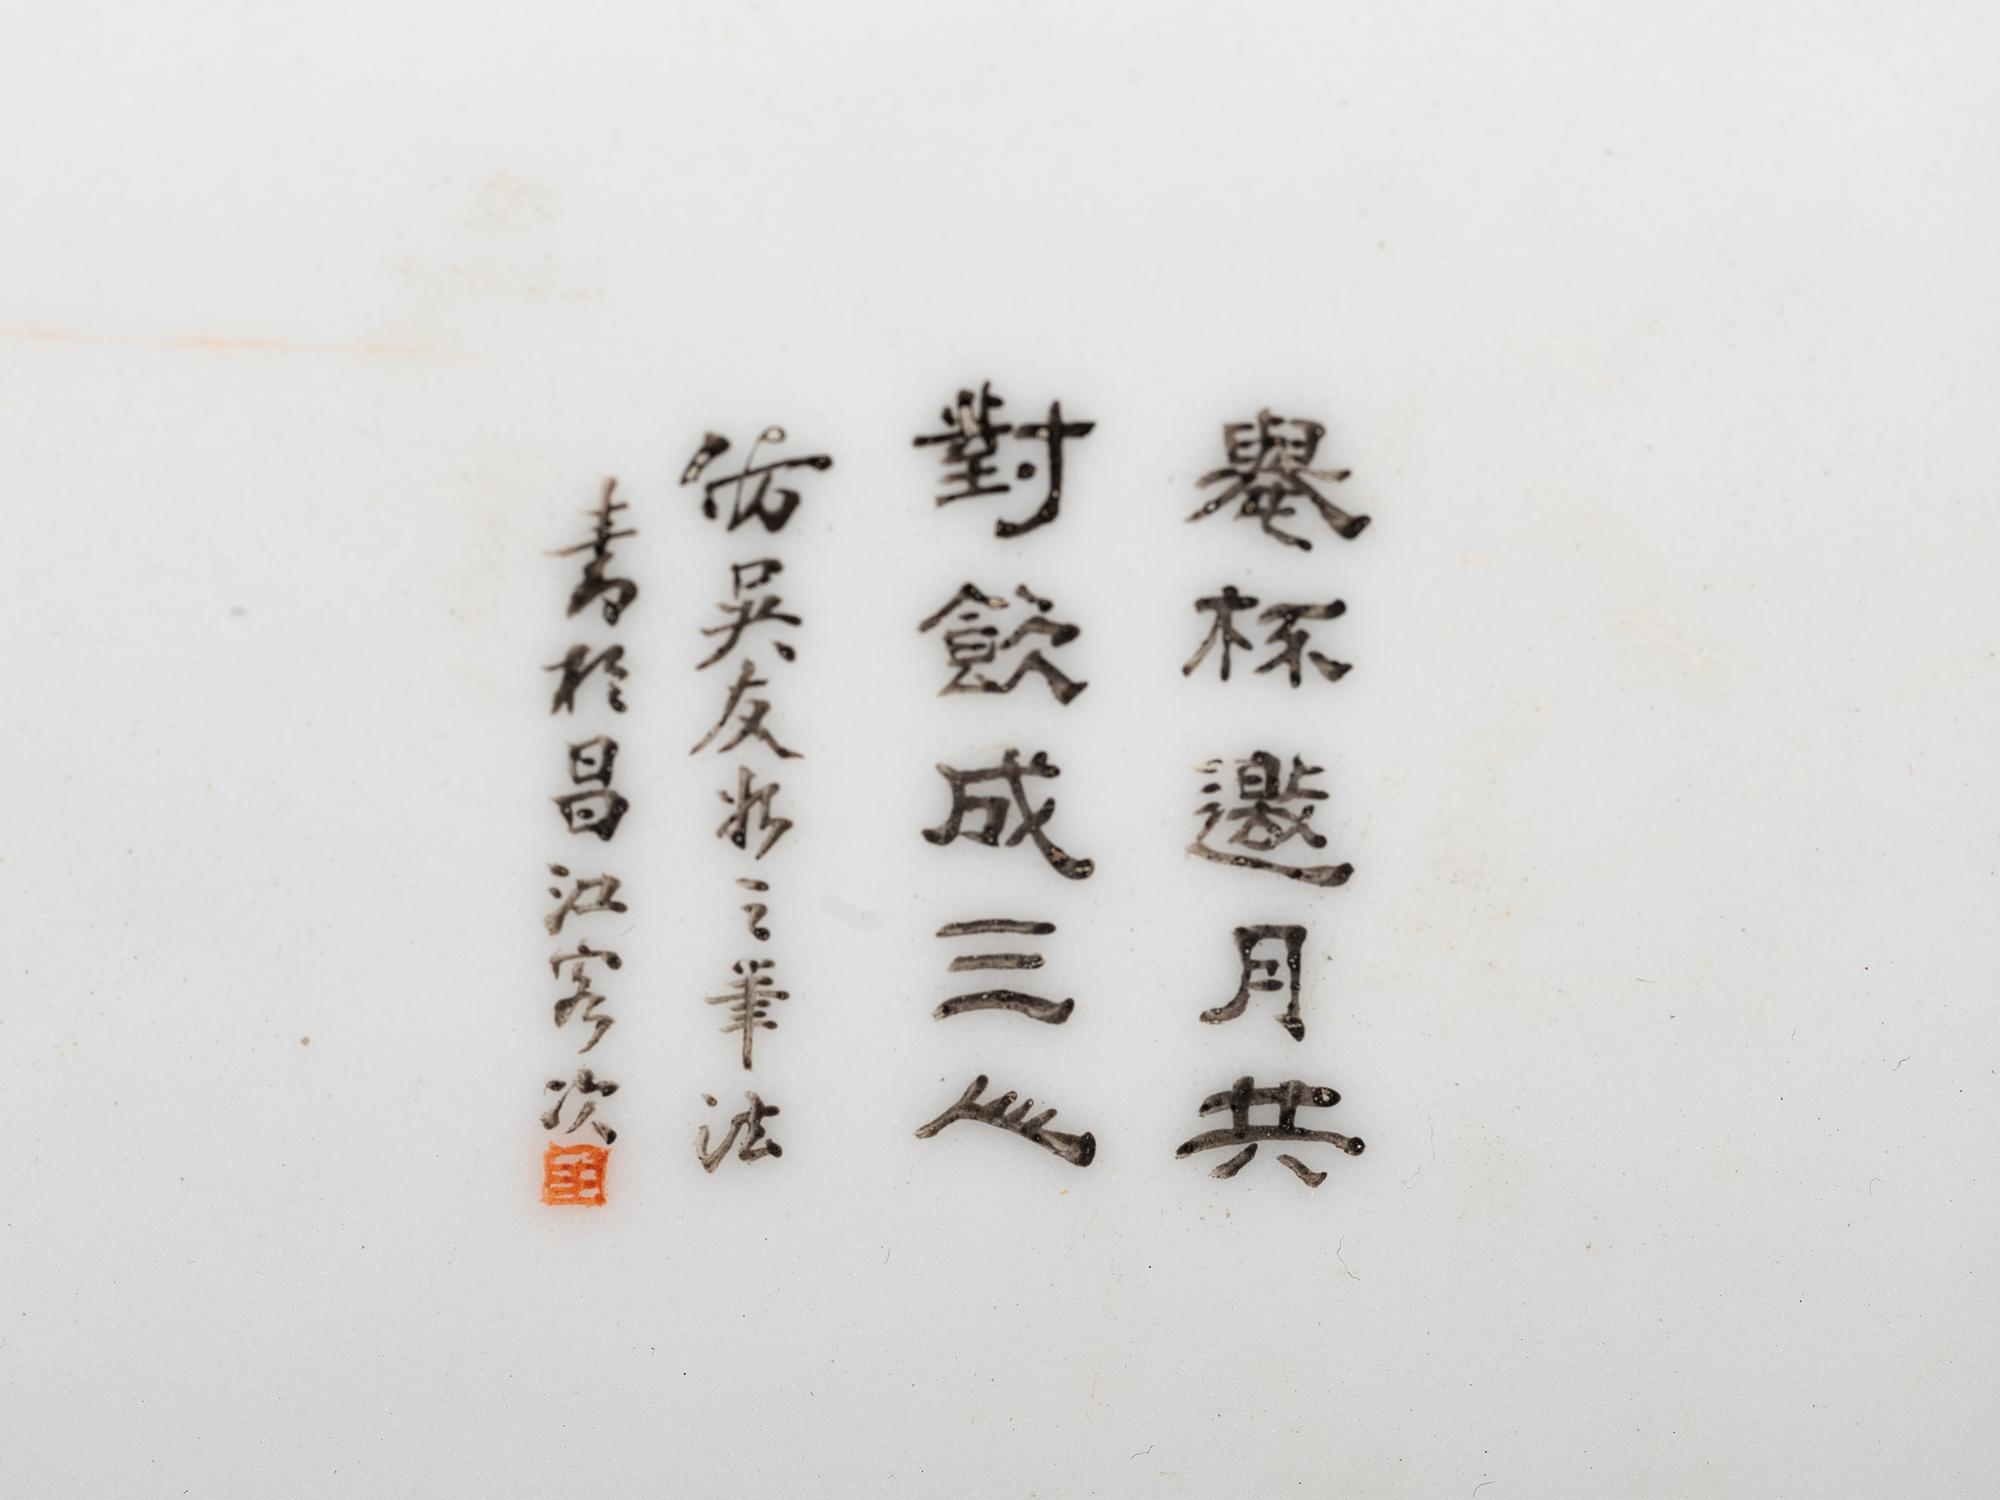 舉杯邀月共
對飲成三人
仿吳友如之筆法
書於昌江客次